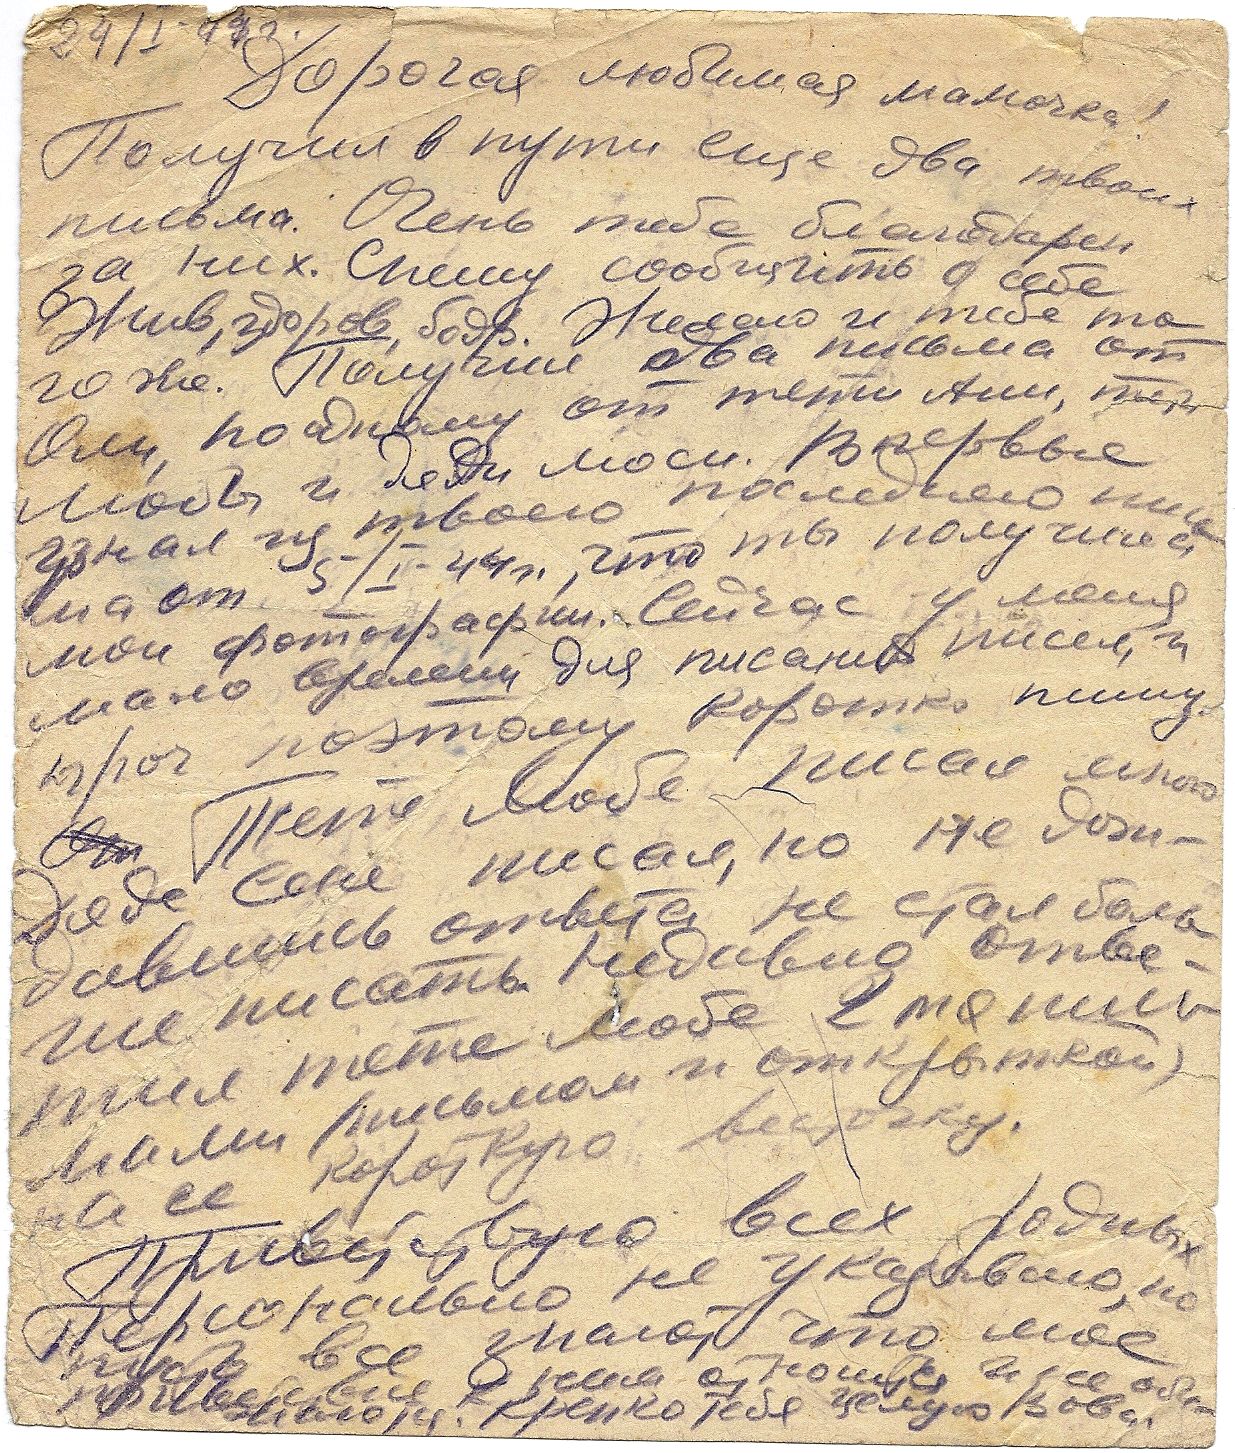 24/I-44г.
Дорогая любимая мамочка!
Получил в пути еще два твоих
письма. Очень тебе благодарен
за них. Спешу сообщить о себе
Жив, здоров, бодр. Желаю и тебе то
го же. Получил два письма от
Оли, по одному от тети Ани, тети
Любы и дяди Моси. Впервые
узнал из твоего последнего пись
ма от 5/I-44г., что ты получила
мои фотографии. Сейчас у меня
мало времени для писания писем, и
поэтому коротко пишу.
Тете Любе писал много
Дяде Сене писал, но не дожи-
давшись ответа, не стал боль
ше писать. Недавно отве-
тил тете Любе 2 мя
письмом и открыткой)
на ее короткую весточку.
Приветствую всех родных
Персонально не указываю, но
пусть все знают, что мое
приветствие к ним относится и не оби-
Крепко тебя целую Вова.